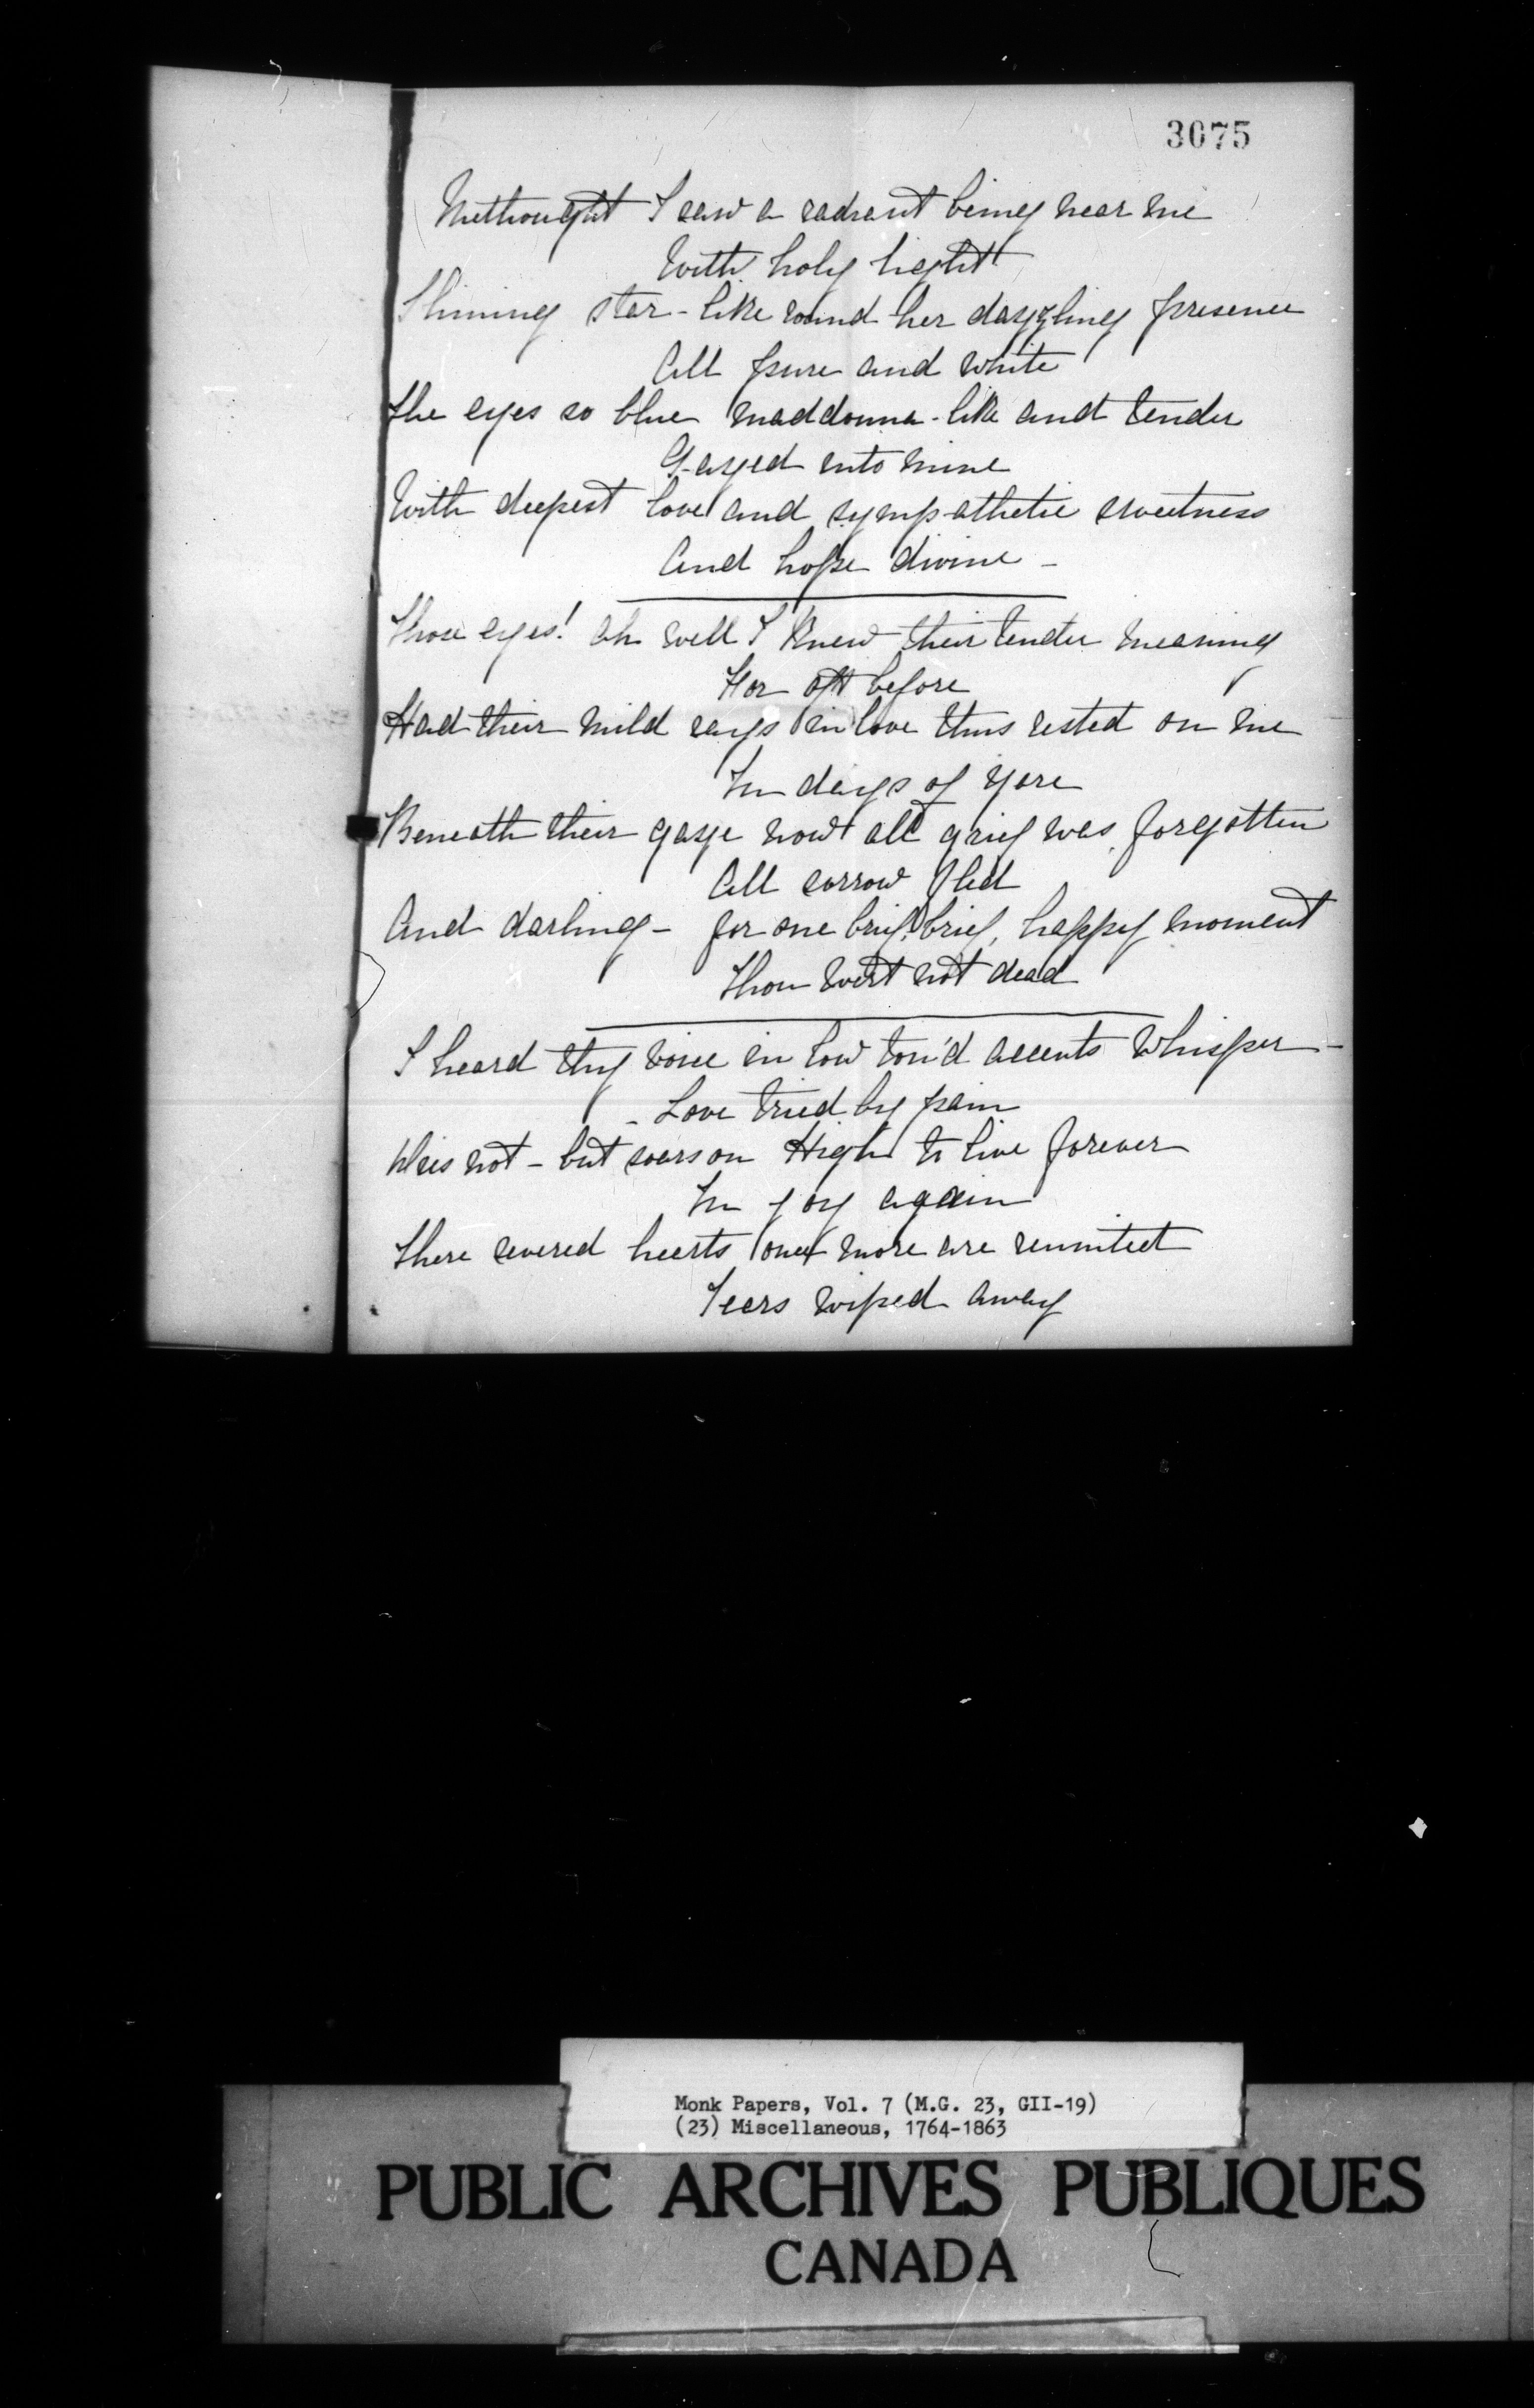 3075
Methought I saw a radiant being near me
With holy light
Shining star-like round her dazzling presence
All pure and white
The eyes so blue maddonna-like and tender
Gazed into mine
With deepest love and sympathetic sweetness
And hope divine -
Those eyes! ah well I knew their tender meaning
For oft before
Had their mild rays in love thus rested on me
In days of yore
Beneath their gaze now all grief was forgotten
All sorrow fled
And darling - for one brief, brief, happy moment
Thou wert not dead
I heard thy voice in low ton'd accents whisper -
- Love tried by pain
Dies not - but soars on High to live forever
In joy again
There severed hearts once more are reunited
Tears wiped away
Monk Papers, Vol. 7 (M.G. 23, GII-19)
(23) Miscellaneous, 1764-1863
PUBLIC ARCHIVES PUBLIQUES
CANADA